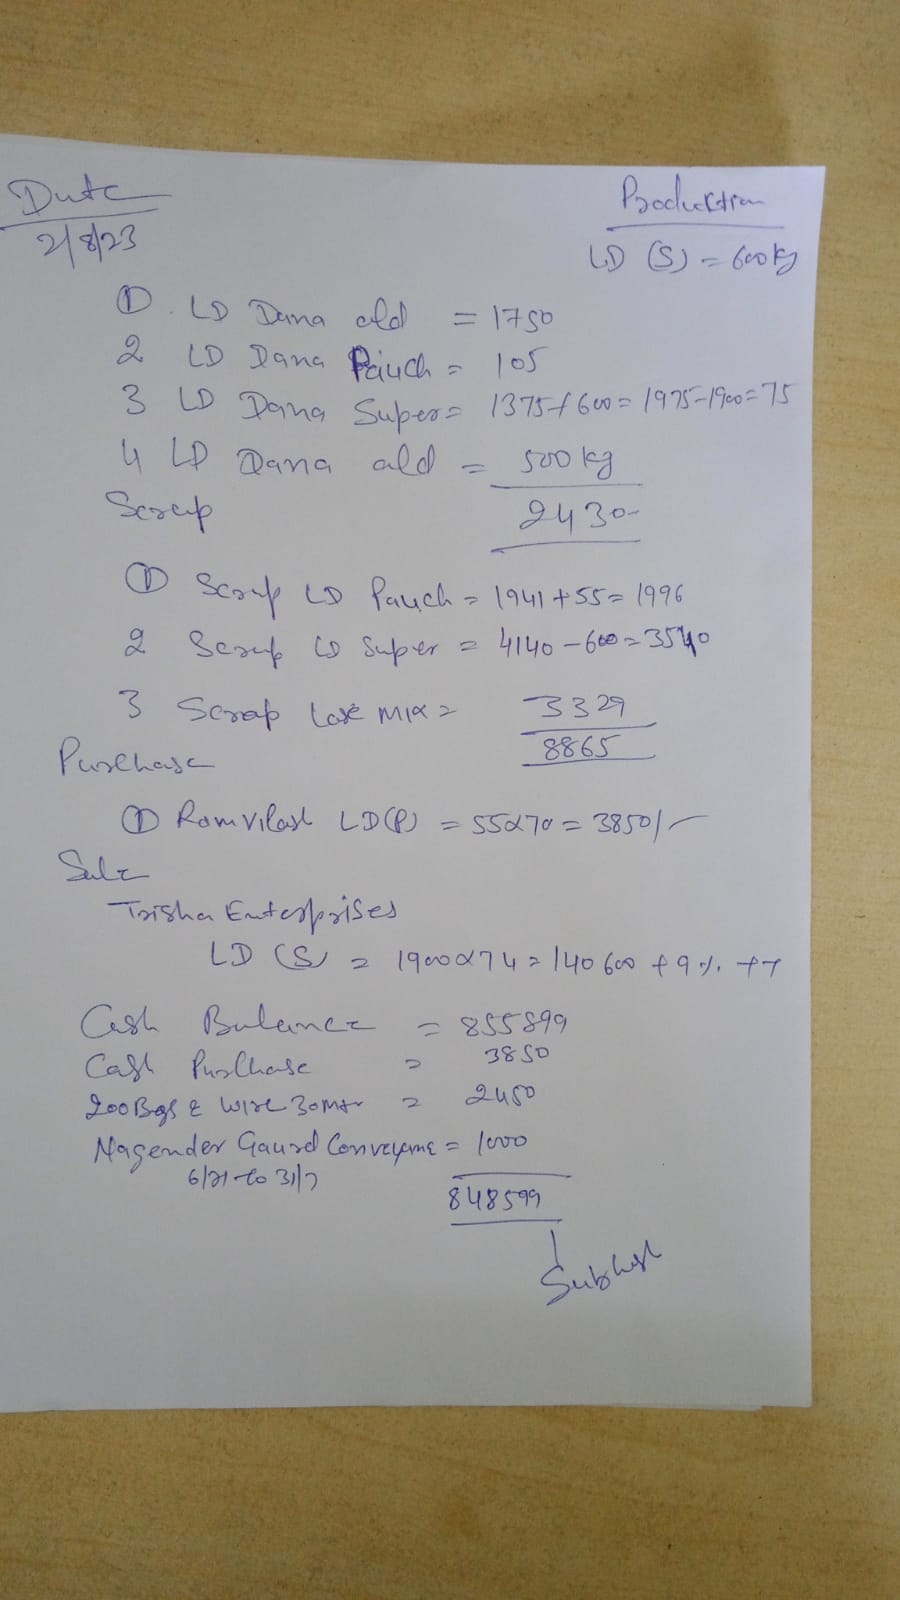 Date
2/8/23
Production
LD (S) = 600 kg
① LD Dana old = 1750
2 LD Dana Pauch = 105
3 LD Dana Super = 1375 + 600 = 1975 - 1900 = 75
4 LD Dana old = 500 kg
2430
Scrap
① Scrap LD Pauch = 1941 + 55 = 1996
2 Scrap LD Super = 4140 - 600 = 3540
3 Scrap Lose Mix = 3329
8865
Purchase
① Ramvilash LD(P) = 55x70 = 3850/-
Sale
Trisha Enterprises
LD (S) = 1900x74 = 140600 + 9 %. +T
Cash Balance = 855899
Cash Purchase = 3850
200 Bgs & Wire 30 Mtr = 2450
Nagender Gaurd Conveyance = 1000
to 31/7
848599
Subhash